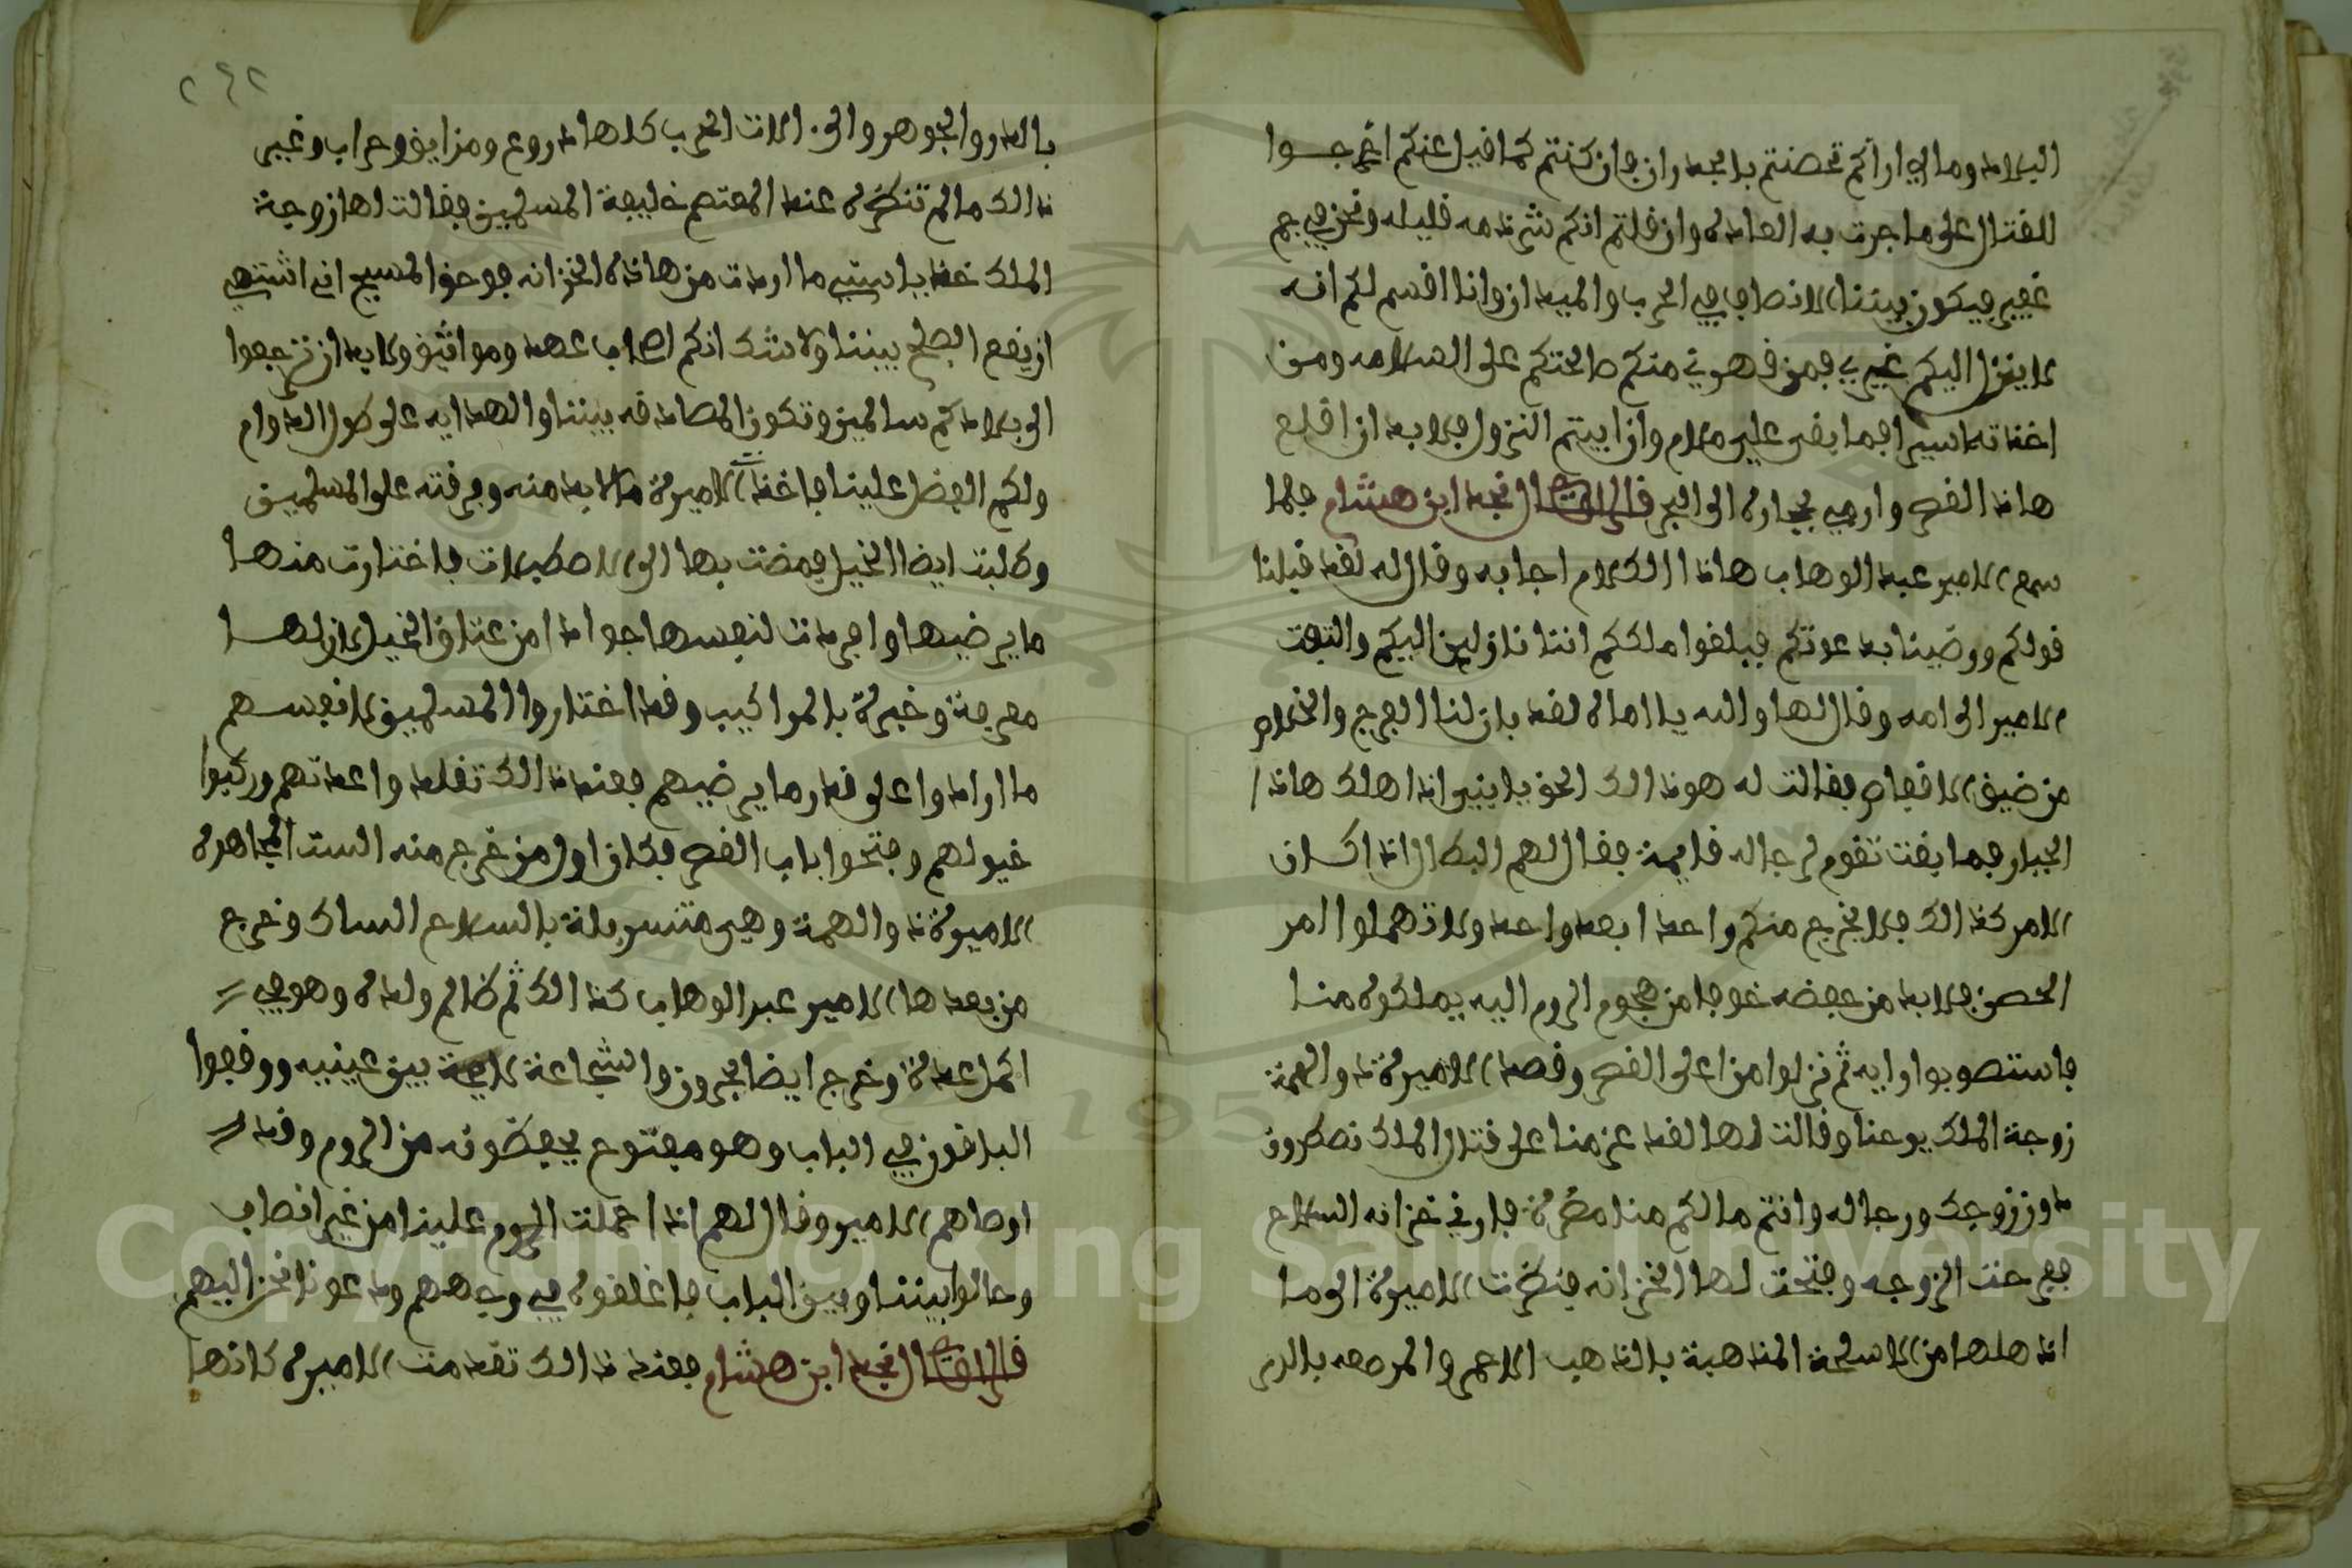 البلاد ومالي اراكم تحصنتم بالجدران فان كنتم كما قيل عنكم اخرجوا
للقتال على ما جرت به العادة وان قلتم انكم شرذمه قليله ونحن في جم
غفير فيكون بيننا الانصاف في الحرب والميدان وانا اقسم لكم انه
لا ينزل اليكم غيري فمن قهرني منكم صالحتكم على السلامه ومن
اخذته اسيرا فما بقى علي ملام وان ابيتم النزول فلا بد ان اقلع
هاذا القصر وارمي بحجاره الى البحر قال الراوي نجد ابن هشام فلما
سمع الامير عبد الوهاب هاذا الكلام اجابه وقال له لقد قبلنا
قولكم ورضينا بدعوتكم فبلغوا ملككم اننا نازلين اليكم والتفت
الامير الى امه وقال لها والله يا اماه لقد بان لنا الفرج والخلاص
من ضيق الاقفاص فقالت له هو ذالك الحق يا بني اذا هلك هاذا
الجبار فما بقت تقوم لرجاله قايمة فقال لهم البطال اذا كان
الامر كذالك فلا يخرج منكم واحدا بعد واحد ولا تهملوا امر
الحصن فلا بد من حفضه خوفا من هجوم الروم اليه يملكوه منا
فاستصوبوا رايه ثم نزلوا من اعلى القصر وقصد الاميرة ذو الهمة
زوجة الملك يوحنا وقالت لها لقد عزمنا على قتال الملك نصطرون
دون زوجك ورجاله وانتم مالكم منا مضرة فاريني خزانه السلاح
ففرحت الزوجه وفتحت لها الخزانه فنظرت الاميرة الى ما
اذهلها من الاسلحة المذهبة بالذهب الاحمر والمرصعه بالدر
٢٤٢
بالدر والجوهر والى الات الحرب كلها دروع ومزايق وحراب وغير
ذالك ما لم تنظره عند المعتصم خليفة المسلمين فقالت لها زوجة
الملك خذ يا ستي ما اردت من هاذه الخزانه فوحق المسيح اني اشتهي
ان يقع الصلح بيننا ولا شك انكم اصحاب عهد ومواثيق ولا بد ان ترجعوا
الى بلادكم سالمين وتكون المصادقه بيننا والهدايه على طول الدوام
ولكم الفضل علينا فاخذ الاميرة ما لا بد منه وفرقته على المسلمين
وطلبت ايضا الخيل فمضت بها الى الاصطبلات فاختارت منها
ما يرضيها وافردت لنفسها جوادا من عتاق الخيل لان لها
معرفة وخبرة بالمراكيب وقد اختاروا المسلمين لانفسهم
ما ارادوا على قدر ما يرضيهم فعند ذالك تقلدوا عدتهم وركبوا
خيولهم وفتحوا باب القصر فكان اول من خرج منه الست المجاهره
الاميرة ذو الهمة وهي متسربلة بالسلاح الساك وخرج
من بعدها الامير عبد الوهاب كذالك ثم ظالم ولده وهو في
اكمل عدة وخرج ايضا بحرون والشجاعة لايحة بين عينيه ووقفوا
الباقون في الباب وهو مفتوح يحفظونه من الروم وقد
اوصاهم الامير وقال لهم اذا حملت الروم علينا من غير انصاف
وحالوا بيننا وبين الباب فاغلقوه في وجههم ودعونا نحن اليهم
قال الراوي نجد ابن هشام فعند ذالك تقدمت الاميره كانها